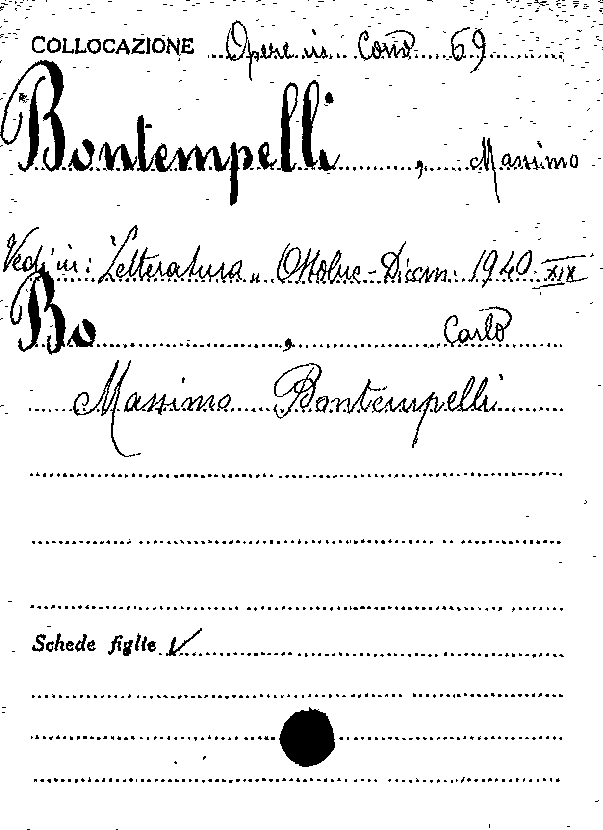 COLLOCAZIONE Opere in Cont 69
Bontempelli, Massimo
Vedi in: "Letteratura" Ottobre-Dicem. 1940 XIX
Bo, Carlo
Massimo Bontempelli
Schede figlie